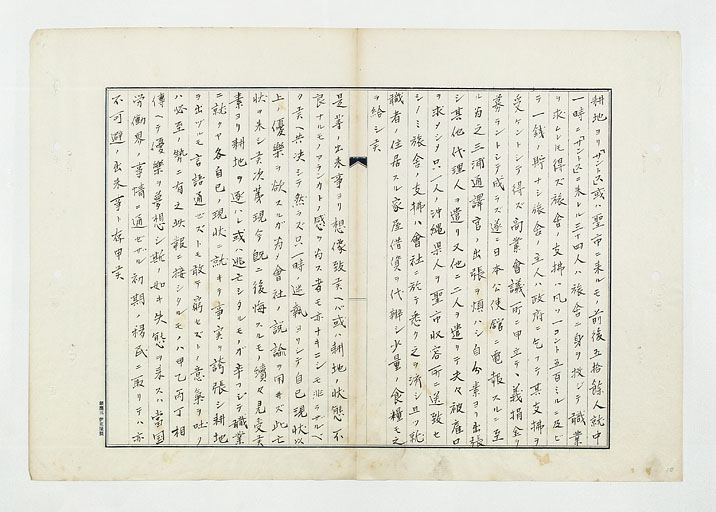 耕地ヨリ「サントス」或ハ聖市ニ来ルモノ前後五拾餘人就中
一時ニ「サントス」ニ来レル三十四人ハ旅舎ニ身ヲ投シテ職業
ヲ求ムルモ得ズ旅舎ノ支拂ハ凡ソ一コント五百ミルニ及ビ
テ一銭ノ貯ナシ旅舎ノ主人ハ政府ニ乞フテ其支拂ヲ
受ケントシテ得ズ商業會議所ニ申立テ義捐金ヲ
募ラントシテ成ラズ遂ニ日本公使館ニ電報スルニ至
ル為之三浦通譯官ノ出張ヲ煩ハシ自分素ヨリ出張
シ其他代理人ヲ遣リ又他ニ二人ヲ遣リテ夫々被雇口
ヲ求メシタ只一人ノ沖縄縣人ヲ聖市収容所ニ送致セ
シノミ旅舎ノ支拂ハ會社ニ於テ悉ク之ヲ済シ且ツ就
職者ノ住居スル家屋借賃ノ代辨シ少量ノ食糧モ之
ヲ給シ候
是等ノ出来事ヨリ想像致候ヘバ或ハ耕地ノ状態不
良ナルモノアランカトノ感ヲ為ス者モ亦ナキニシモ非ラザルベ
ク候ヘ共決シテ然ラズ只一時ノ逆執ヨリシテ自己現状以
上ノ優樂ヲ欲スルガ為メ會社ノ説諭ヲ用ヰズ此亡
状ヲ来シ候次第現今既ニ後悔スルモノ續々見受候
素ヨリ耕地ヲ逐ハレ或ハ逃亡シタルモノガ辛フジテ職業
ニ就クヤ各自己ノ現状ニ就キテ事実ヲ誇張シ耕地
ヲ出ヅルモ言語通ゼズトモ敢テ窮セズトノ意気ヲ吐ク
ハ必至ノ勢ニ有之此報ニ接シタルモノハ甲乙丙丁相
傳ヘテ優樂ヲ夢想シ斯ノ如キ失態ヲ来スハ當国
労働界ノ事情ニ通ゼザル初期ノ移民ニ取リテハ亦
不可避ノ出来事ト存申候